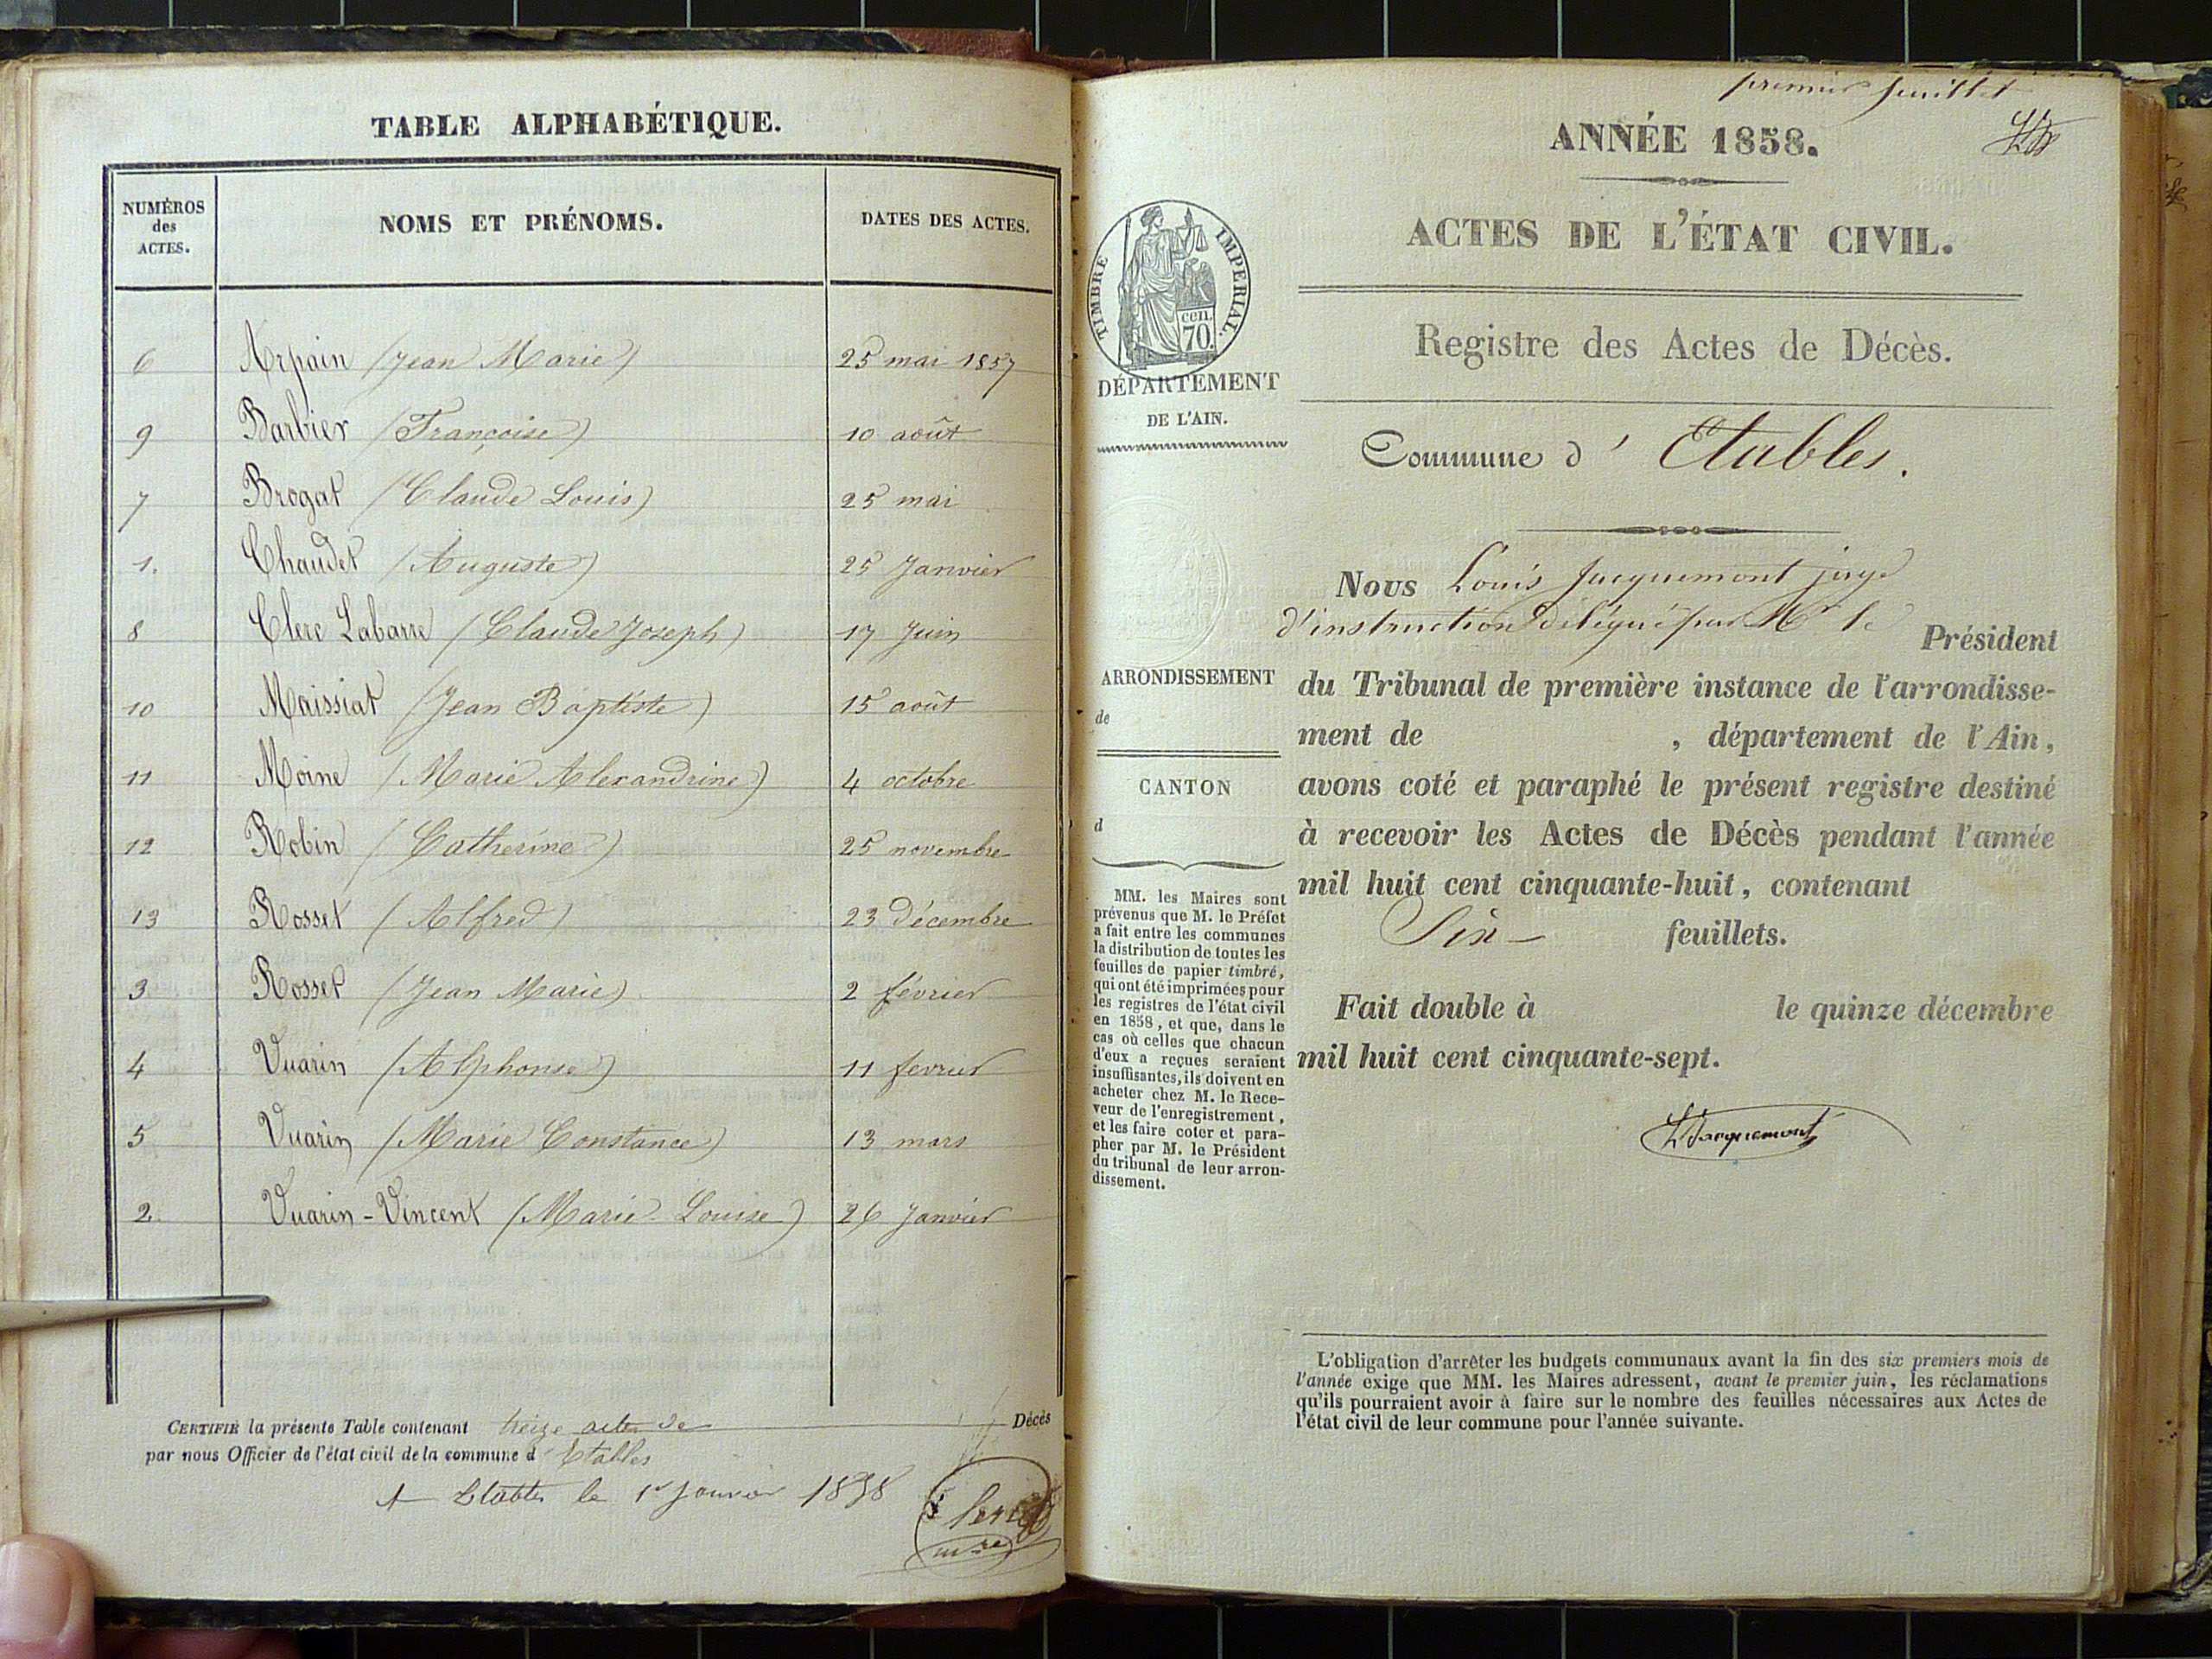 TABLE ALPHABÉTIQUE.
NUMÉROS des ACTES. NOMS ET PRÉNOMS. DATES DES ACTES.
6 Arpain (Jean Marie) 25 mai 1857
9 Barbier (Françoise) 10 août
7 Brogat (Claude Louis) 25 mai
1. Chaudet (Auguste) 25 Janvier
8 Clerc Labarre (Claude Joseph) 17 Juin
10 Maissiat (Jean Baptiste) 15 août
11 Moine (Marie Alexandrine) 4 octobre
12 Robin (Catherine) 25 novembre
13 Rosset (Alfred) 23 Décembre
3 Rosset (Jean Marie) 2 février
4 Vuarin (Alphonse) 11 fevrier
5 Vuarin (Marie Constance) 13 mars
2. Vuarin-Vincent (Marie Louise) 26 Janvier
CERTIFIÉ la présente Table contenant treize actes de Décès
par nous Officier de l'état civil de la commune d' Etables
A Etables le 1er Janvier 1858
premier feuillet
ANNÉE 1858.
ACTES DE L'ÉTAT CIVIL.
TIMBRE IMPERIAL.
cen. 70.
DÉPARTEMENT
DE L'AIN.
Registre des Actes de Décès.
Commune d' Etables.
ARRONDISSEMENT
de
CANTON
d
MM. les Maires sont
prévenus que M. le Préfet
a fait entre les communes
la distribution de toutes les
feuilles de papier timbré,
qui ont été imprimées pour
les registres de l'état civil
en 1858, et que, dans le
cas où celles que chacun
d'eux a reçues seraient
insuffisantes, ils doivent en
acheter chez M. le Rece-
veur de l'enregistrement,
et les faire coter et para-
pher par M. le Président
du tribunal de leur arron-
dissement.
Nous Louis Jacquemont juge
d'instruction délégué par Mr le Président
du Tribunal de première instance de l'arrondisse-
ment de , département de l'Ain,
avons coté et paraphé le présent registre destiné
à recevoir les Actes de Décès pendant l'année
mil huit cent cinquante-huit, contenant
Six feuillets.
Fait double à le quinze décembre
mil huit cent cinquante-sept.
LJacquemont
L'obligation d'arrêter les budgets communaux avant la fin des six premiers mois de
l'année exige que MM. les Maires adressent, avant le premier juin, les réclamations
qu'ils pourraient avoir à faire sur le nombre des feuilles nécessaires aux Actes de
l'état civil de leur commune pour l'année suivante.